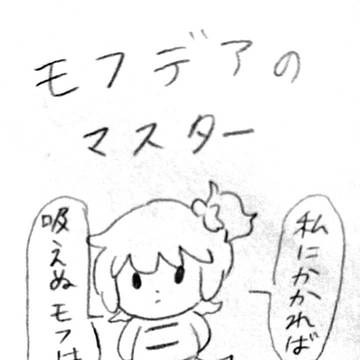 モフデアの
マスター
私にかかれば
吸えぬモフは